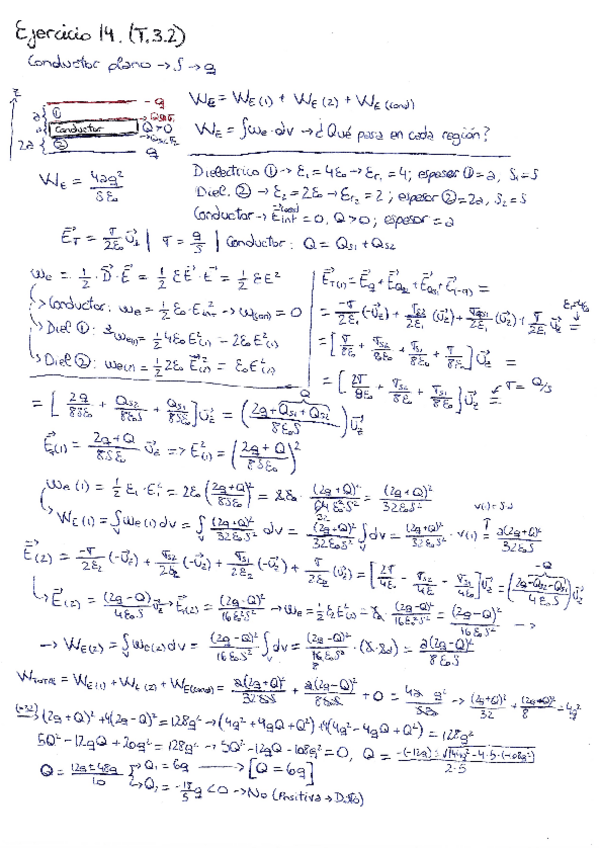 Ejercicio 14. (T.3.2)
Conductor plano → S → q
z
-q
① → Qs1
a
a
Conductor Q>0
2a ② → Qs2
q
W_E = W_E(1) + W_E(2) + W_E(cond)
W_E = ∫we·dv → ¿Qué pasa en cada región?
W_E = 4aq²/Sε₀
Dielectrico ① → ε₁ = 4ε₀ → εr₁ = 4; espesor ① = a, S₁ = S
Diel. ② → ε₂ = 2ε₀ → εr₂ = 2; espesor ② = 2a, S₂ = S
Conductor → E_int = 0, Q>0; espesor = a
E_T = σ/2ε₀ u_z | σ = q/S | Conductor: Q = Qs1 + Qs2
we = 1/2·D·E = 1/2 εE·E = 1/2 εE²
↳ Conductor: we = 1/2 ε₀·E_int → w(con) = 0
↳ Diel ①: we(1) = 1/2 4ε₀E²(1) = 2ε₀E²(1)
↳ Diel ②: we(2) = 1/2 2ε₀ E²(2) = ε₀E²(2)
E_T(1) = E_q + E_Qs2 + E_Qs1 + E_(-q) =
= -σ/2ε₁ (-u_z) + σs2/2ε₁ (u_z) + σs1/2ε₁ (u_z) + σ/2ε₁ u_z = εr=4ε₀
= [σ/8ε₀ + σs2/8ε₀ + σs1/8ε₀ + σ/8ε₀] u_z =
= [2σ/8ε₀ + σs2/8ε₀ + σs1/8ε₀] u_z = σ = Q/S
= [2q/8Sε₀ + Qs2/8ε₀S + Qs1/8ε₀S] u_z = (2q+Qs1+Qs2 / 8ε₀S) u_z
Q
E(1) = 2q+Q/8Sε₀ u_z => E²(1) = (2q+Q/8Sε₀)²
we(1) = 1/2 ε₁·E₁² = 2ε₀ (2q+Q/8Sε₀)² = 2ε₀·(2q+Q)²/64ε₀²S² = (2q+Q)²/32ε₀S²
32
v(1) = S·a
↳ W_E(1) = ∫we(1)dv = ∫(2q+Q)²/32ε₀S² dv = (2q+Q)²/32ε₀S² ∫dv = (2q+Q)²/32ε₀S²·v(1) = a(2q+Q)²/32ε₀S
E(2) = -σ/2ε₂ (-u_z) + σs2/2ε₂ (-u_z) + σs1/2ε₂ (-u_z) + σ/2ε₂ (u_z) = [2σ/4ε₀ - σs2/4ε₀ - σs1/4ε₀] u_z = (2q-Qs2-Qs1 / 4ε₀S) u_z
-Q
↳ E(2) = (2q-Q)/4ε₀S u_z → E²(2) = (2q-Q)²/16ε₀²S² → we = 1/2 ε₂E²(2) = ε₀·(2q-Q)²/16ε₀²S² = (2q-Q)²/16ε₀S² →
→ W_E(2) = ∫we(2)dv = (2q-Q)²/16ε₀S² ∫dv = (2q-Q)²/16ε₀S²·(S·2a) = a(2q-Q)²/8ε₀S
8
W_TOTAL = W_E(1) + W_E(2) + W_E(cond) = a(2q+Q)²/32ε₀S + a(2q-Q)²/8ε₀S + 0 = 4a q²/Sε₀ → (2q+Q)²/32 + (2q-Q)²/8 = 4q²
(·32) (2q+Q)² + 4(2q-Q)² = 128q² → (4q² + 4qQ + Q²) + 4(4q² - 4qQ + Q²) = 128q²
5Q² - 12qQ + 20q² = 128q² → 5Q² - 12qQ - 108q² = 0, Q = -(-12q) ± √144q² - 4·5·(-108q²) / 2·5
Q = 12q ± 48q / 10 → Q₁ = 6q → [Q = 6q]
↳ Q₂ = -18/5 q < 0 → No (Positiva → Dato)